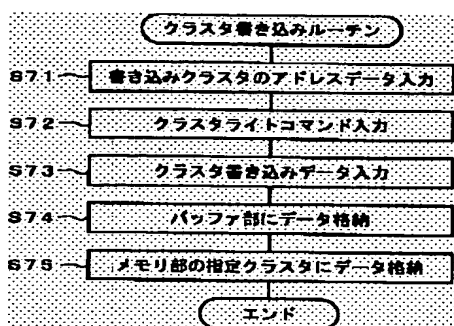 クラスタ書き込みルーチン
S71 書き込みクラスタのアドレスデータ入力
S72 クラスタライトコマンド入力
S73 クラスタ書き込みデータ入力
S74 バッファ部にデータ格納
S75 メモリ部の指定クラスタにデータ格納
エンド